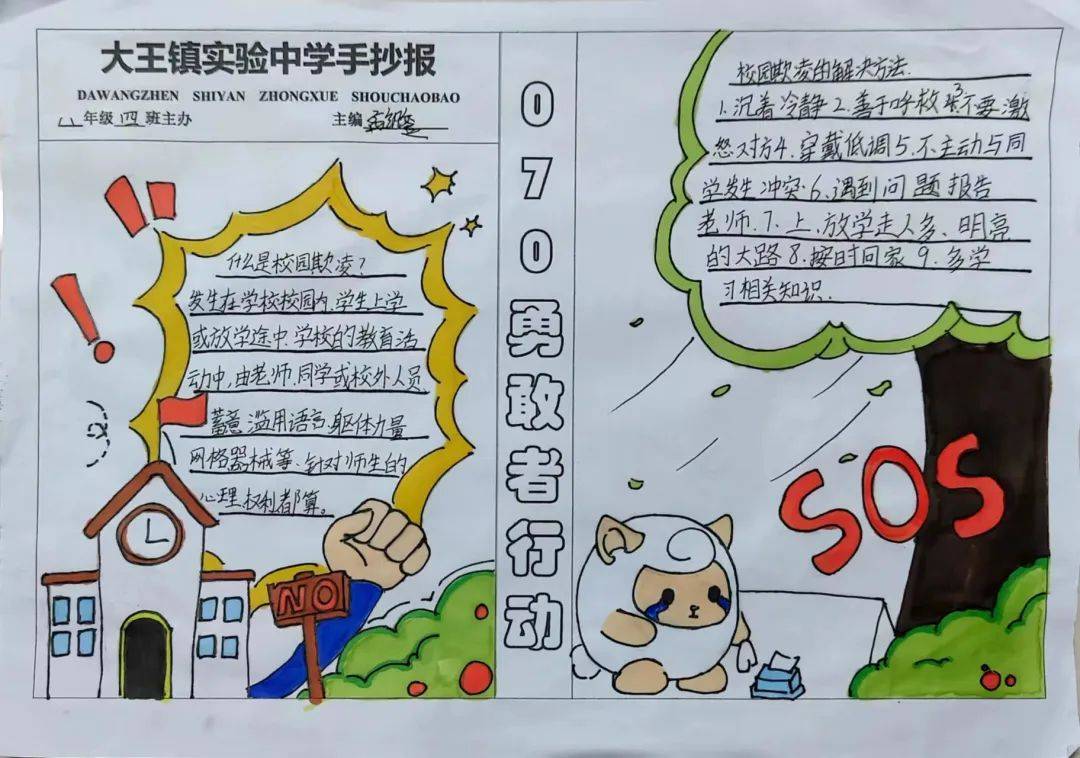 大王镇实验中学手抄报
DAWANGZHEN SHIYAN ZHONGXUE SHOUCHAOBAO
八年级四班主办 主编
什么是校园欺凌？
发生在学校校园内、学生上学
或放学途中、学校的教育活
动中，由老师、同学或校外人员
蓄意滥用语言、躯体力量
网格器械等、针对师生的
心理权利都算。
NO
070勇敢者行动
校园欺凌的解决方法.
1.沉着冷静2.善于呼救 3不要激
怒对方4.穿戴低调5.不主动与同
学发生冲突6.遇到问题报告
老师.7.上、放学走人多、明亮
的大路8.按时回家9.多学
习相关知识.
SOS